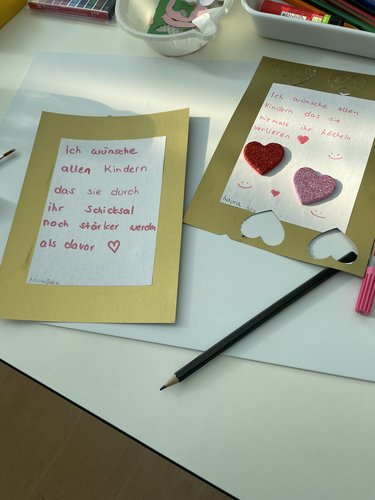 Ich wünsche
allen Kindern
das sie durch
ihr Schicksal
noch stärker werden
als davor ♡
Ich wünsche allen
Kindern das sie
niemals ihr Lächeln
verlieren